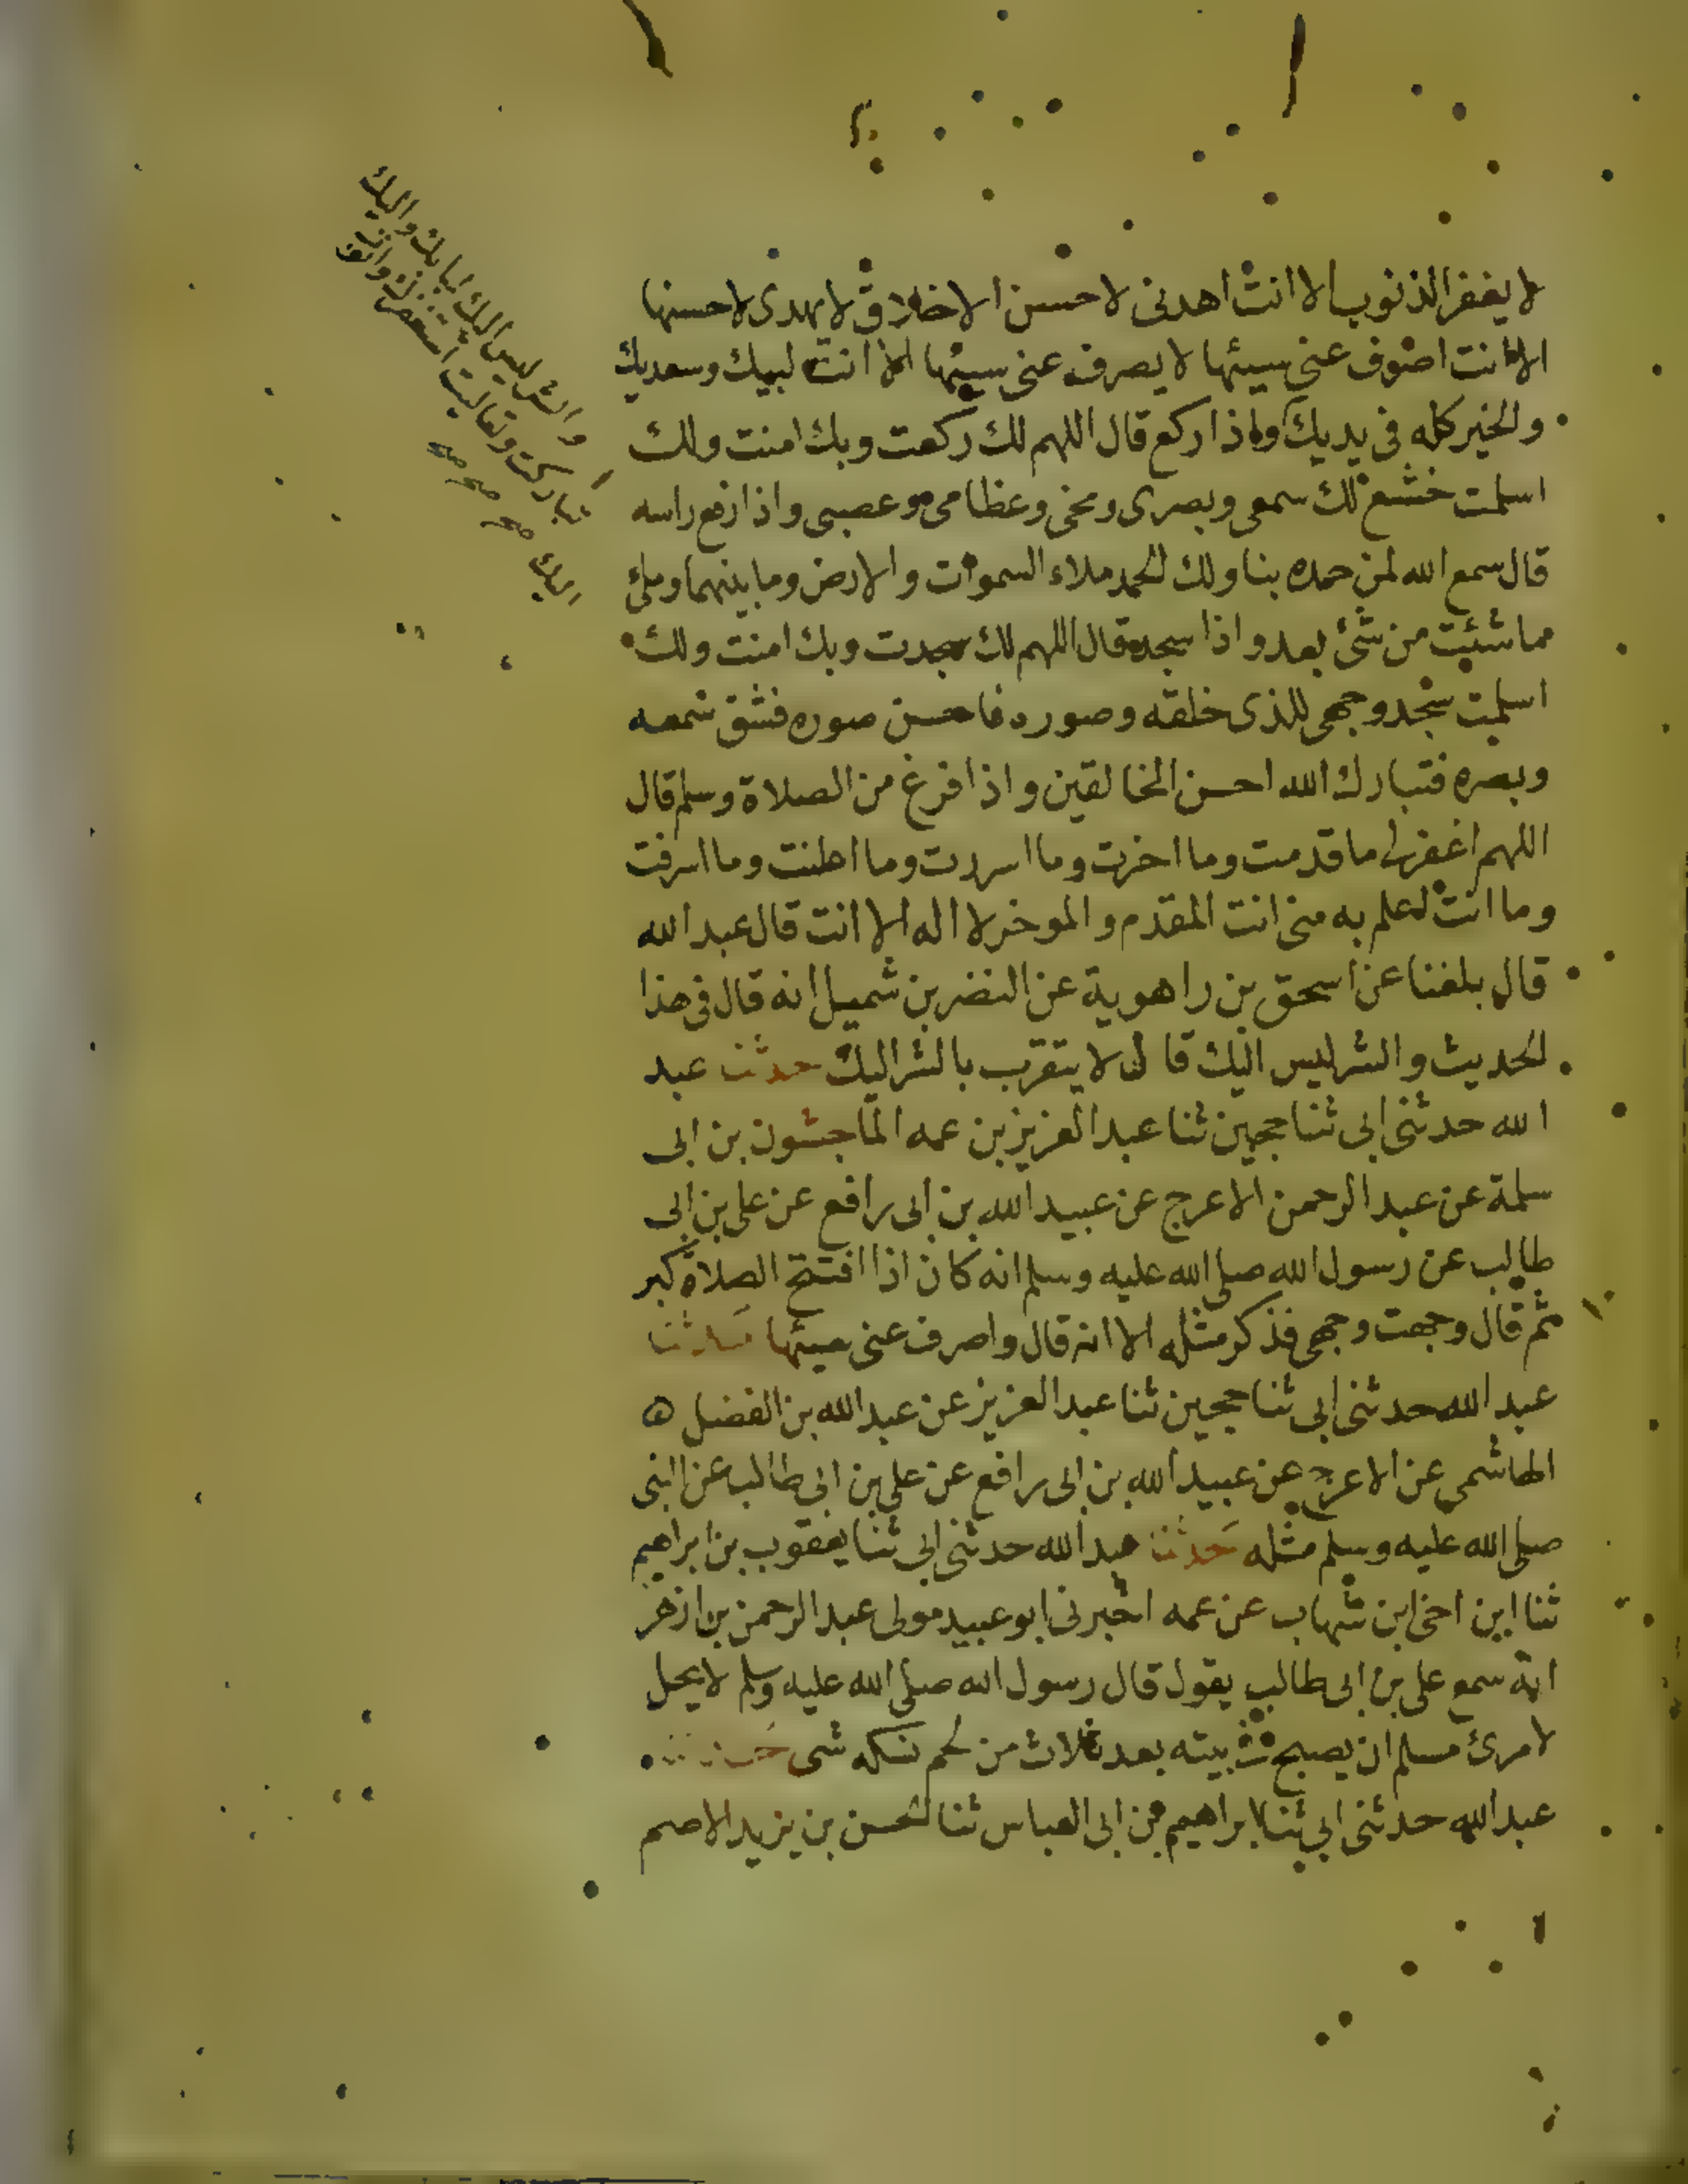 لا يغفر الذنوب الا انت اهدنى لاحسن الاخلاق لا يهدى لاحسنها
الا انت اصرف عنى سيئها لا يصرف عنى سيئها الا انت لبيك وسعديك
والخير كله فى يديك واذا ركع قال اللهم لك ركعت وبك امنت ولك
اسلمت خشع لك سمعى وبصرى ومخى وعظامى وعصبى واذا رفع راسه
قال سمع الله لمن حمده بنا ولك الحمد ملاء السموات والارض وما بينهما وملئ
ما شئت من شئ بعد واذا سجد قال اللهم لك سجدت وبك امنت ولك
اسلمت سجد وجهى للذى خلقه وصوره فاحسن صوره فشق سمعه
وبصره فتبارك الله احسن الخالقين واذا فرغ من الصلاة وسلم قال
اللهم اغفر لى ما قدمت وما اخرت وما اسررت وما اعلنت وما اسرفت
وما انت اعلم به منى انت المقدم والموخر لا اله الا انت قال عبد الله
قال بلغنا عن اسحق بن راهوية عن النضر بن شميل انه قال فى هذا
الحديث والشر ليس اليك قال لا يتقرب بالشر اليك حدثنا عبد
الله حدثنى ابى ثنا حجين ثنا عبد العزيز بن عمه الماجشون بن ابى
سلمة عن عبد الرحمن الاعرج عن عبيد الله بن ابى رافع عن على بن ابى
طالب عن رسول الله صلى الله عليه وسلم انه كان اذا افتتح الصلاة كبر
ثم قال وجهت وجهى فذكر مثله الا انه قال واصرف عنى سيئها حدثنا
عبد الله حدثنى ابى ثنا حجين ثنا عبد العزيز عن عبد الله بن الفضل ه
الهاشمى عن الاعرج عن عبيد الله بن ابى رافع عن على بن ابى طالب عن النبى
صلى الله عليه وسلم مثله حدثنا عبد الله حدثنى ابى ثنا يعقوب بن ابراهيم
ثنا ابن اخى ابن شهاب عن عمه اخبرنى ابو عبيد مولى عبد الرحمن بن ازهر
انه سمع على بن ابى طالب يقول قال رسول الله صلى الله عليه وسلم لا يحل
لامرئ مسلم ان يصبح فى بيته بعد ثلاث من لحم نسكه شى حدثنا
عبد الله حدثنى ابى ثنا ابراهيم بن ابى العباس ثنا الحسن بن يزيد الاصم
والشر ليس اليك انا بك واليك
تباركت وتعاليت استغفرك واتوب
اليك صح صح صح